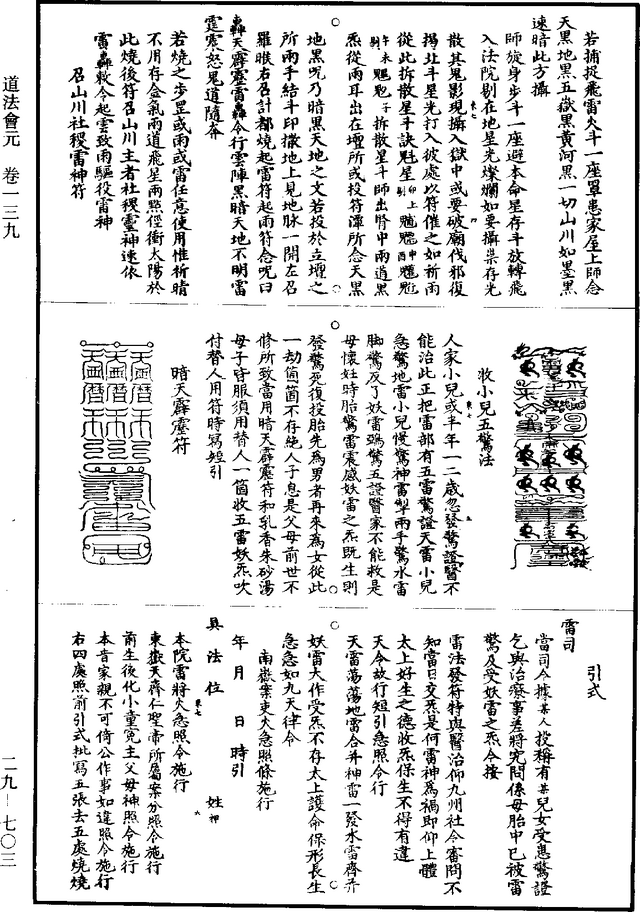 道法會元　卷一三九
若捕捉飛雷火斗一座罩患家屋上師念
天黑地黑五嶽黑黃河黑一切山川如墨黑
速暗此方攝
師旋身步斗一座避本命星存斗放轉飛
入法院剔在地星光燦爛如要攝祟存光
散其鬼影現攝入獄中或要破廟伐邪復
揭北斗星光打入彼處以符催之如祈雨
從此拆散星斗訣魁星
拆散星斗師出腎中兩道黑
炁從兩耳出在壇所或投符潭所念天黑
地黑咒乃暗黑天地之文若投於立壇之
所兩手結斗印撒地上見地脉一開左召
羅睺右召計都燒起雷符起雨符念咒曰
轟天霹靂雷轟轟令行雲陣黑暗天地不明雷
霆震怒鬼道隨奔
若燒之步罡或雨或雷任意使用惟祈晴
不用存金氣兩道飛星兩點徑衝太陽於
此燒後符召山川主者社稷靈神速依
雷轟敕令起雲致雨驅役雷神
召山川社稷雷神符
收小兒五驚法
人家小兒或半年一二歲忽發驚證醫不
能治此正把雷部有五雷驚證天雷小兒
急驚地雷小兒慢驚神雷掣兩手驚水雷
脚驚反了妖雷鵶驚五證醫家不能救是
母懷妊時胎驚雷震感妖雷之炁既生則
發驚死復投胎先為男者再來為女從此
一劫箇箇不存絕人子息是父母前世不
修所致當用暗天霹靂符和乳香朱砂湯
母子皆服須用替人一箇收五雷妖炁吹
付替人用符時寫短引
暗天霹靂符
雷司
引式
當司今據某人投稱有某兒女受患驚證
乞與治療事差將究問係母胎中已被雷
驚及受妖雷之炁令按
雷法發符特與醫治仰九州社令審問不
知當日交炁是何雷神為禍即仰上體
太上好生之德收炁保生不得有違
天令故行短引急照令行
天雷蕩蕩地雷合并神雷一發水雷齊奔
妖雷大作受炁不存太上護命保形長生
急急如九天律令
南嶽案吏火急照條施行
年　月　日　時引
具　法　位　姓　押
本院雷將火急照令施行
東嶽天齊仁聖帝所屬案分照令施行
前生後化小童冤主父母神照令施行
本音家親不可倚公作事如違照令施行
右四處照前引式批寫五張去五處燒燒
二九－七〇三